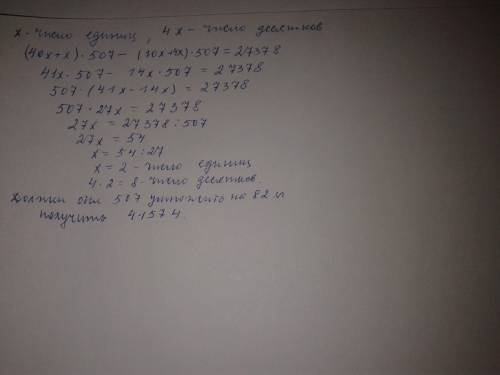 x - число единиц, 4x - число десятков
(40x+x)·507 - (10x+4x)·507 = 27378
41x·507 - 14x·507 = 27378
507·(41x-14x) = 27378
507·27x = 27378
27x = 27378:507
27x = 54
x = 54:27
x = 2 - число единиц
4·2 = 8 - число десятков.
Должен был 507 умножить на 82 и
получить 41574.